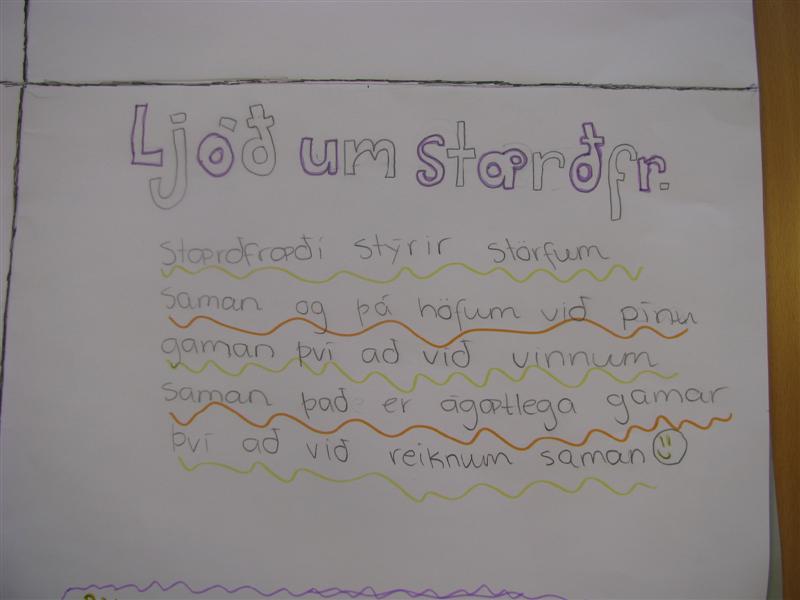 Ljóð um stærðfr.
stærðfræði stýrir störfum
saman og þá höfum við pínu
gaman því að við vinnum
saman það er ágætlega gamar
því að við reiknum saman